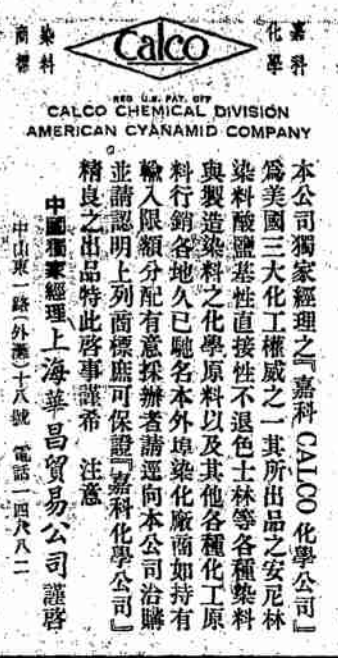 嘉科
化學
Calco
染料
商標
REG U.S. PAT. OFF
CALCO CHEMICAL DIVISION
AMERICAN CYANAMID COMPANY
本公司獨家經理之『嘉科CALCO化學公司』
爲美國三大化工權威之一其所出品之安尼林
染料酸鹽基性直接性不退色士林等各種染料
與製造染料之化學原料以及其他各種化工原
料行銷各地久已馳名本外埠染化廠商如持有
輸入限額分配有意採辦者請逕向本公司洽購
並請認明上列商標庶可保證『嘉科化學公司』
精良之出品特此啓事謹希 注意
中國獨家經理上海華昌貿易公司謹啓
中山東一路(外灘)十八號 電話一四八八二